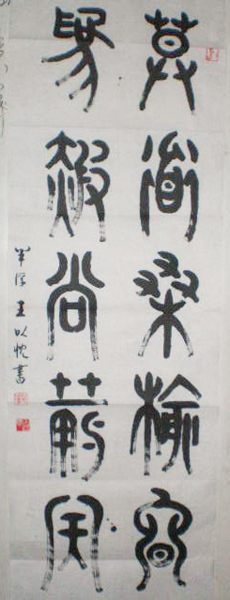 莫道桑榆晚
為霞尚滿天
王以忱書